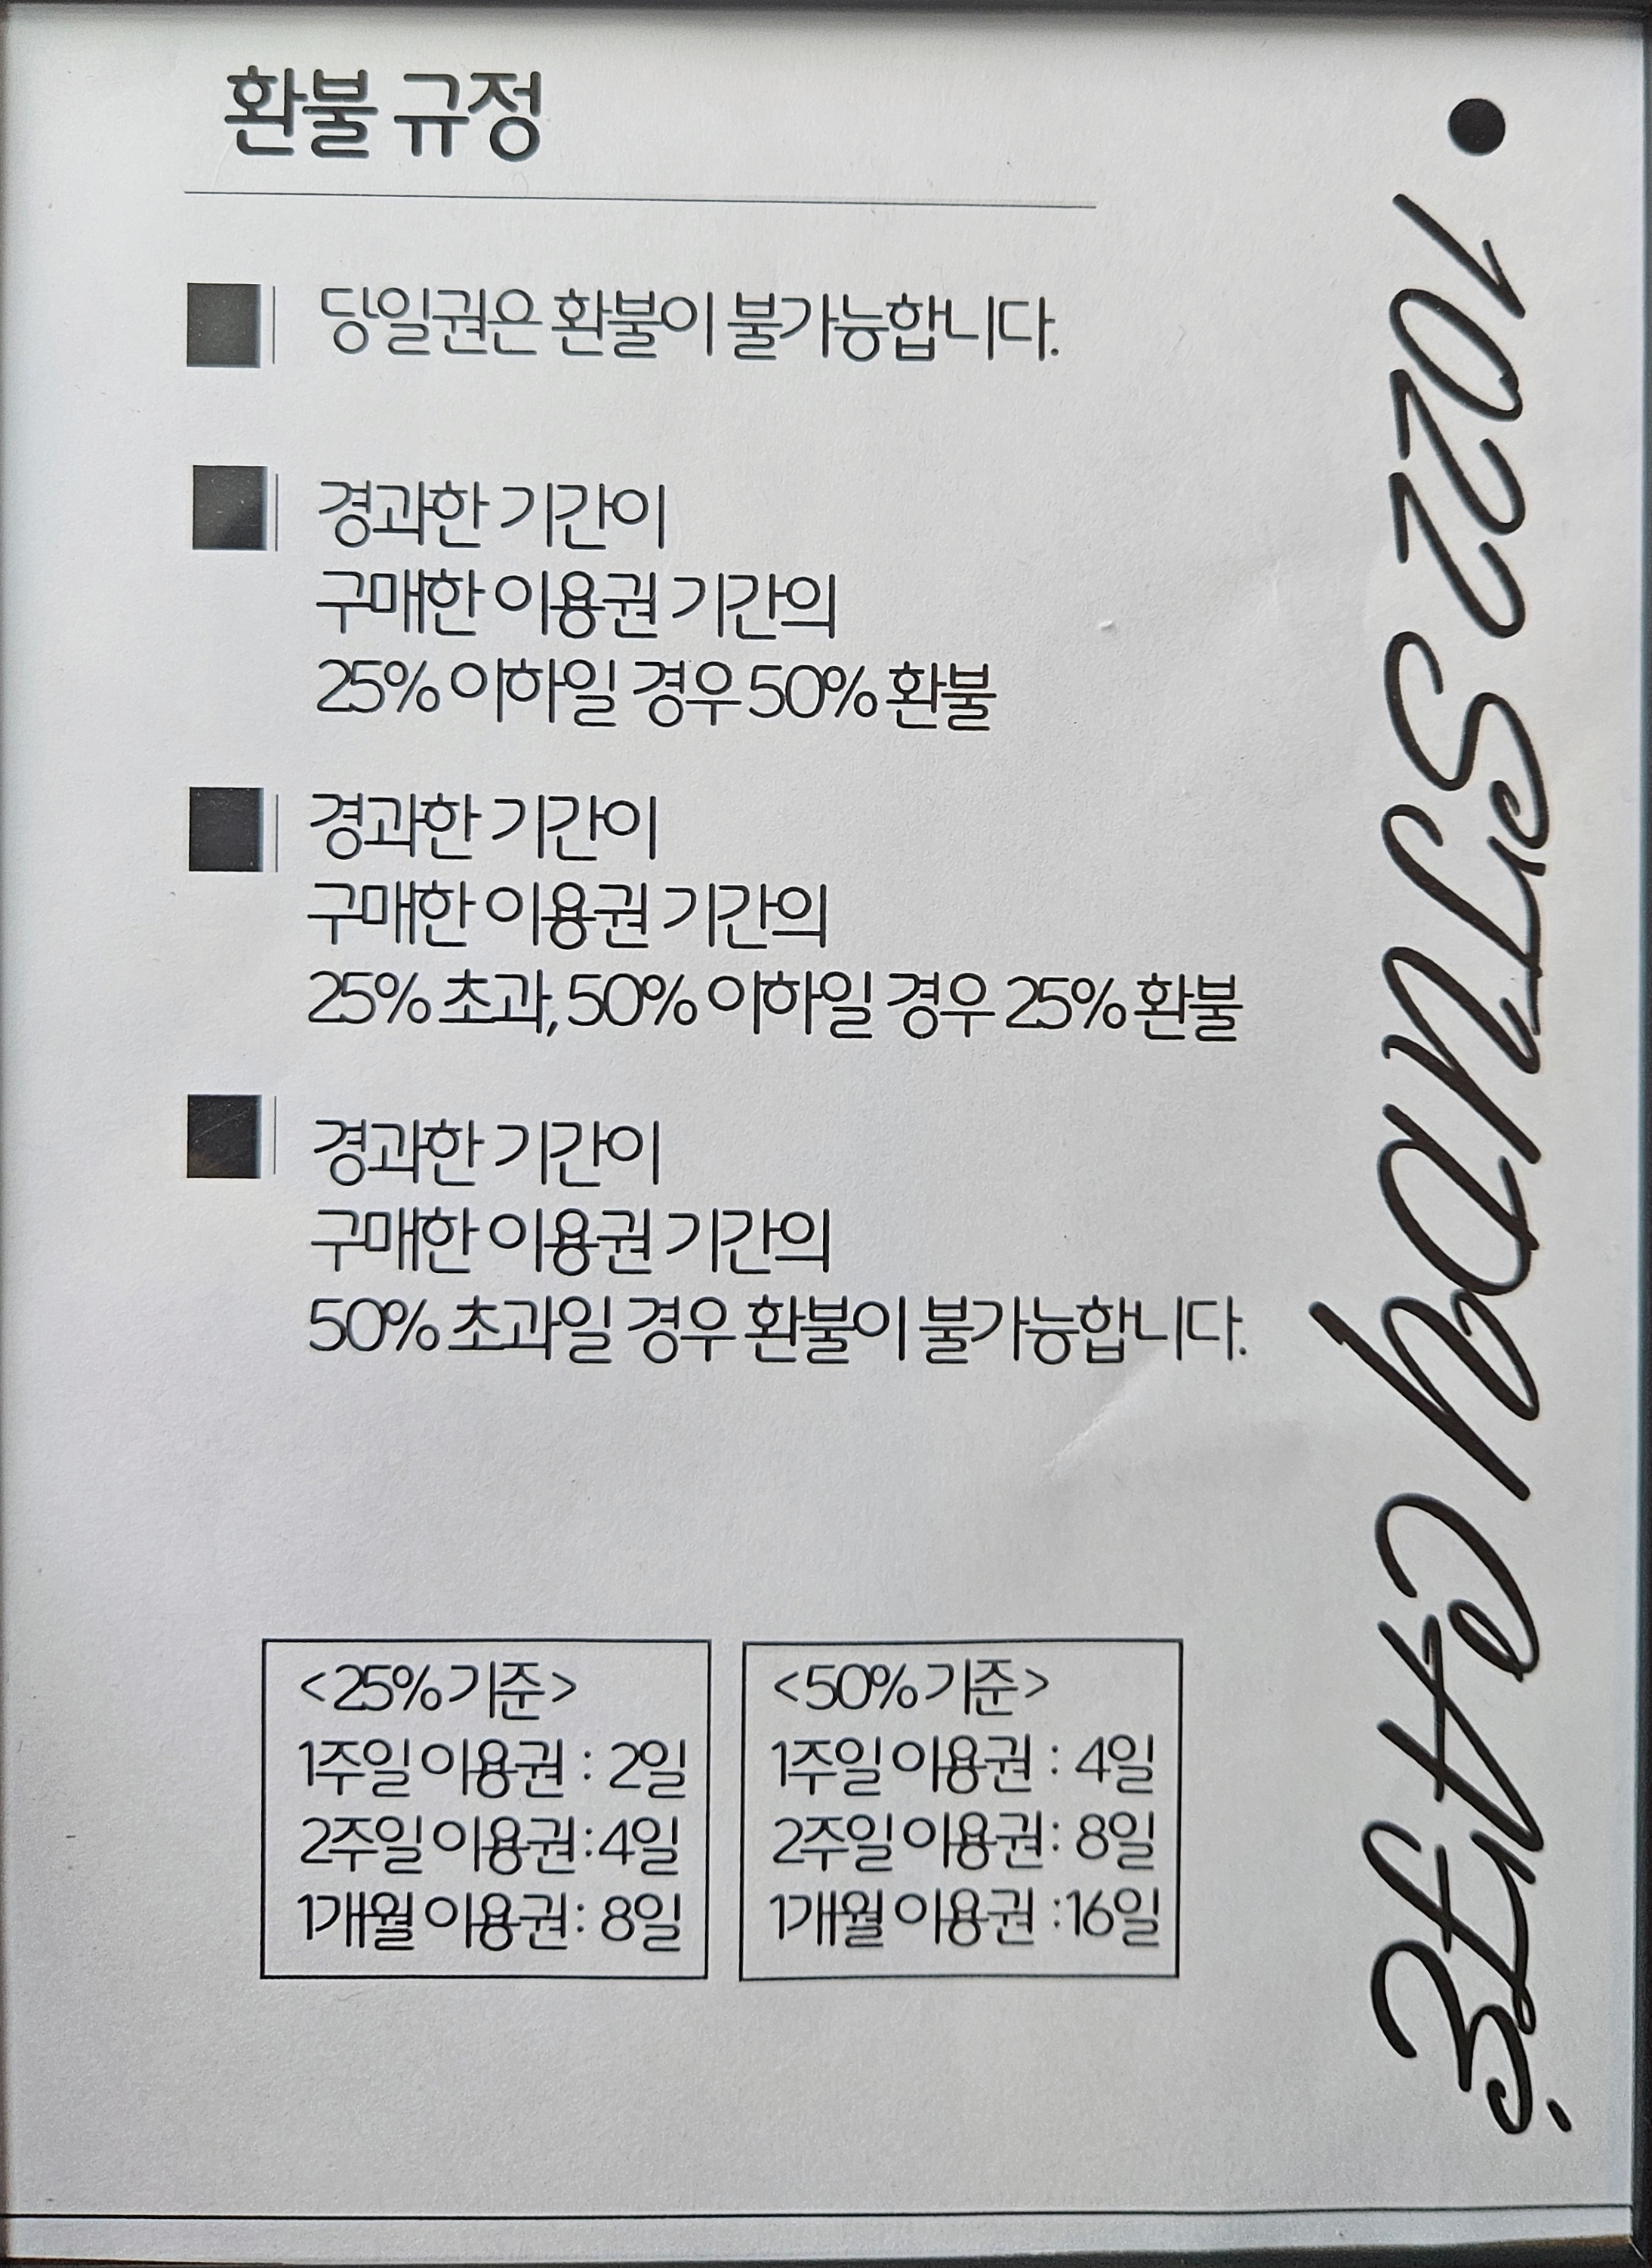 환불 규정
당일권은 환불이 불가능합니다.
경과한 기간이
구매한 이용권 기간의
25% 이하일 경우 50% 환불
경과한 기간이
구매한 이용권 기간의
25% 초과, 50% 이하일 경우 25% 환불
경과한 기간이
구매한 이용권 기간의
50% 초과일 경우 환불이 불가능합니다.
<25% 기준>
1주일 이용권 : 2일
2주일 이용권 : 4일
1개월 이용권 : 8일
<50% 기준>
1주일 이용권 : 4일
2주일 이용권 : 8일
1개월 이용권 : 16일
1022 STUDY CAFÉ